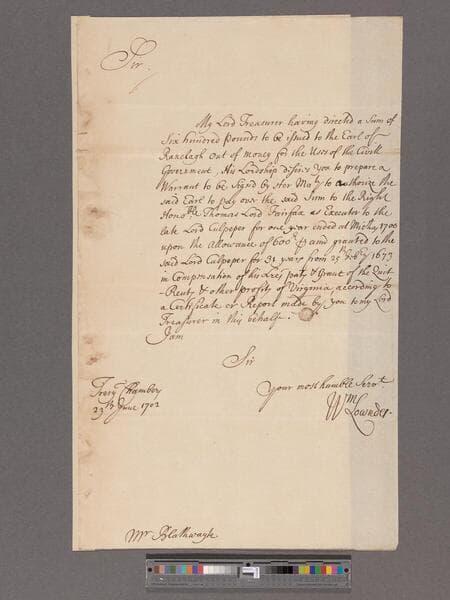 Sir.
My Lord Treasurer having directed a Sum of
Six hundred Pounds to be issued to the Earl of
Ranelagh out of money for the Uses of the Civill
Government, His Lordship desires You to prepare a
Warrant to be Signd by Her Maty to authorize the
said Earl to pay over the said Sum to the Right
Honoble Thomas Lord Fairfax as Executor to the
late Lord Culpeper for one year ended at Michas 1700
upon the Allowance of 600£ p and granted to the
said Lord Culpeper for 31 years from 25th 1673
in Compensation of his Lres patts & Grant of the Quit
-Rents & other profits of Virginia according to
a Certificate or Report made by you to my Lord
Treasurer in this behalf.
I am
Sir
Your most humble Servt
Wm Lowndes.
Treãry Chamber
23th June 1702
Mr Blathwayt